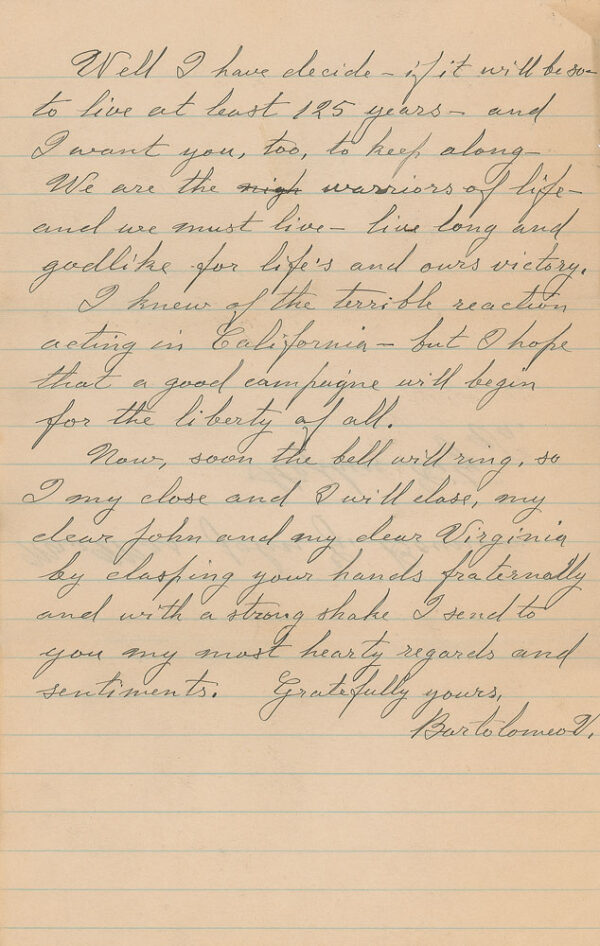 Well I have decide - if it will be so -
to live at least 125 years - and
I want you, too, to keep along -
We are the nigh warriors of life -
and we must live - live long and
godlike for life's and ours victory.
I knew of the terrible reaction
acting in California - but I hope
that a good campaigne will begin
for the liberty of all.
Now, soon the bell will ring, so
I my close and I will close, my
dear John and my dear Virginia
by clasping your hands fraternally
and with a strong shake I send to
you my most hearty regards and
sentiments. Gratefully yours,
Bartolomeo V.